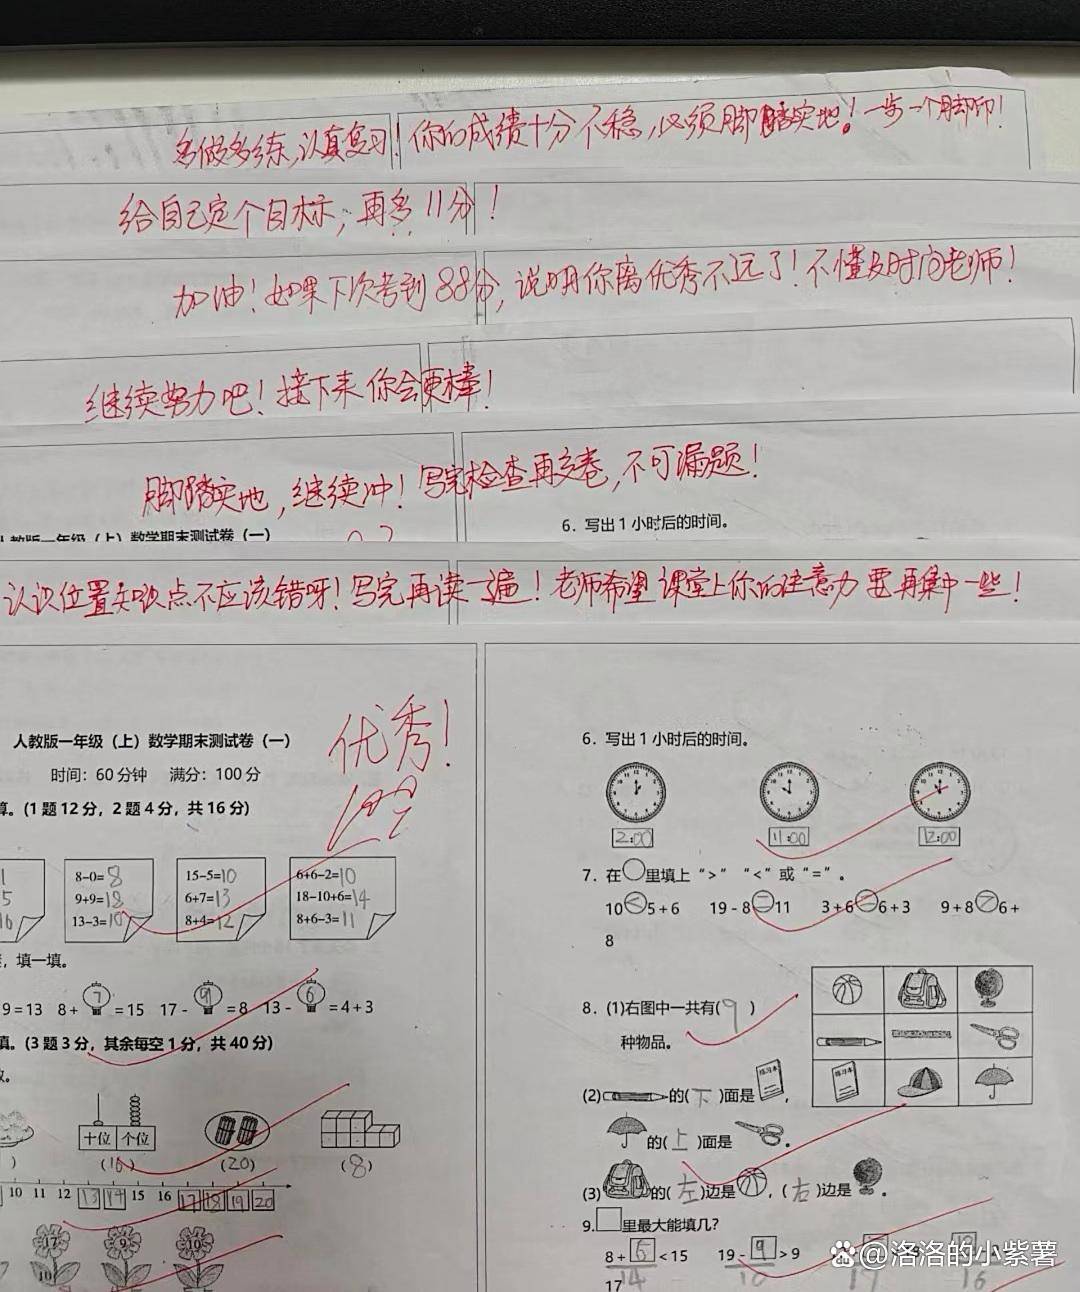 多做多练,认真复习!你的成绩十分不稳,必须脚踏实地!一步一个脚印!
给自己定个目标,再多11分!
加油!如果下次考到88分,说明你离优秀不远了!不懂及时问老师!
继续努力吧!接下来你会更棒!
脚踏实地,继续冲!写完检查再交卷,不可漏题!
人教版一年级(上)数学期末测试卷(一)
6. 写出1小时后的时间。
认识位置知识点不应该错呀!写完再读一遍!老师希望课堂上你的注意力要再集中一些!
优秀!
人教版一年级(上)数学期末测试卷(一)
时间:60分钟 满分:100分
算。(1题12分,2题4分,共16分)
8-0=8
9+9=18
13-3=10
15-5=10
6+7=13
8+4=12
6+6-2=10
18-10+6=14
8+6-3=11
,填一填。
9=13 8+7=15 17-9=8 13-6=4+3
填。(3题3分,其余每空1分,共40分)
十位 个位
(20)
(8)
10 11 12 13 14 15 16 17 18 19 20
17 9 10
10
6. 写出1小时后的时间。
2:00 11:00 12:00
7. 在○里填上">""<"或"="。
10<5+6 19-8=11 3+6=6+3 9+8>6+
8
8. (1)右图中一共有(9)
种物品。
练习本
练习本
(2) 的(下)面是 ,
的(上)面是 。
(3) 的(左)边是 ,(右)边是 。
9. □里最大能填几?
8+6<15 19-9>9
14 10 17 16
17
@洛洛的小紫薯